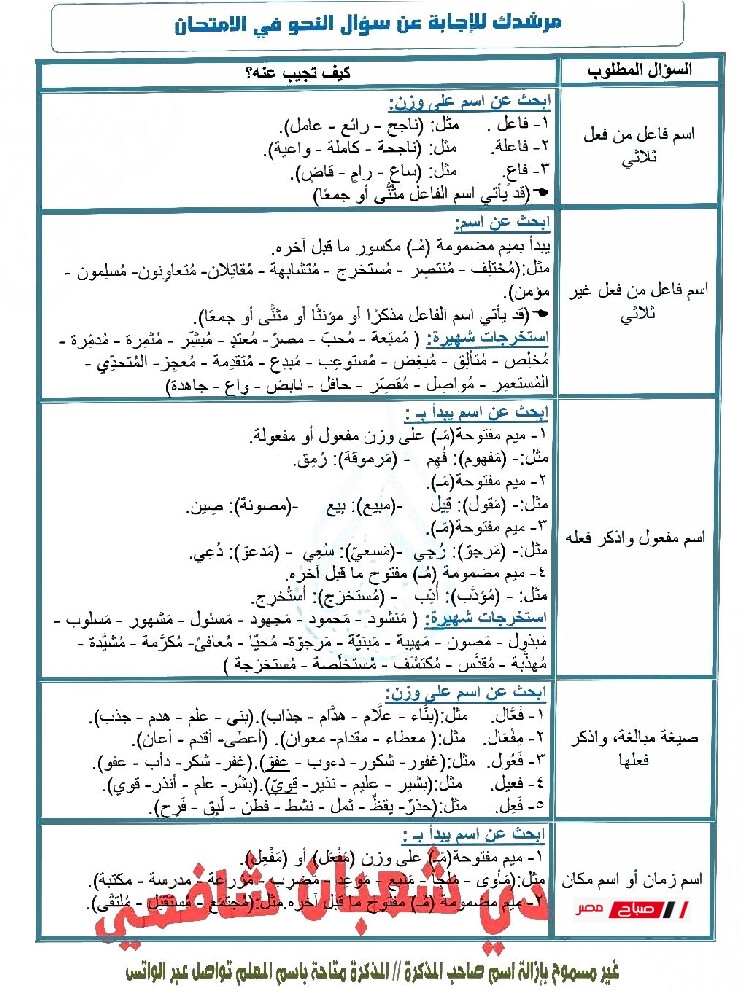 مرشدك للإجابة عن سؤال النحو في الامتحان
السؤال المطلوب
كيف تجيب عنه؟
اسم فاعل من فعل ثلاثي
ابحث عن اسم على وزن:
١- فاعل. مثل: (ناجح - رائع - عامل).
٢- فاعلة. مثل: (ناجحة - كاملة - واعية).
٣- فاعٍ. مثل: (ساعٍ - رامٍ - قاضٍ).
(قد يأتي اسم الفاعل مثنًّى أو جمعًا)
اسم فاعل من فعل غير ثلاثي
ابحث عن اسم:
يبدأ بميم مضمومة (مُـ) مكسور ما قبل آخره.
مثل:(مُختلِف - مُنتصِر - مُستخرِج - مُتشابهة - مُقاتِلان- مُتعاوِنون- مُسلِمون -
مؤمن).
(قد يأتي اسم الفاعل مذكرًا أو مؤنثًا أو مثنًّى أو جمعًا).
استخرجات شهيرة: ( مُمتِعة - مُحبّ - مصرّ - مُعتدٍ - مُبشّر - مُثمِرة - مُدمِّرة -
مُخلِص - مُتألِّق - مُبغِض - مُستوعِب - مُبدِع - مُتقدِّمة - مُعجِز- المُتحدِّي -
المُستعمِر - مُواصِل - مُقصِّر - حافل - نابض - واعٍ - جاهدة)
اسم مفعول واذكر فعله
ابحث عن اسم يبدأ بـ :
١- ميم مفتوحة(مَـ) على وزن مفعول أو مفعولة.
مثل:- (مَفهوم): فُهِم - (مَرموقة): رُمِق.
٢- ميم مفتوحة(مَـ).
مثل:- (مَقول): قِيل -(مبيع): بيع -(مصونة): صِين.
٣- ميم مفتوحة(مَـ).
مثل:- (مَرجوّ): رُجي - (مَسعيّ): سُعِي - (مَدعوّ): دُعِي.
٤- ميم مضمومة (مُـ) مفتوح ما قبل آخره.
مثل:- (مُؤدَّب): أُدِّب - (مُستخرَج): أُستُخرِج.
استخرجات شهيرة: ( مَنشود - مَحمود - مَجهود - مَسئول - مَشهور - مَسلوب -
مَبذول - مَصون - مَهيبة - مَبنيّة - مَرجوّة- مُحيّا - مُعافىً - مُكرَّمة - مُشيَّدة -
مُهذَّبة - مُقدَّس - مُكتشَف - مُستخلَصة - مُستخرَجة )
صيغة مبالغة، واذكر فعلها
ابحث عن اسم على وزن:
١- فَعَّال. مثل:(بنَّاء - علَّام - هدَّام - جذاب).(بنى - علم - هدم - جذب).
٢- مِفْعَال. مثل:( معطاء - مقدام- معوان). (أعطى- أقدم - أعان).
٣- فَعُول. مثل:(غفور- شكور - دءوب - عفوّ).(غفر- شكر- دأب - عفو).
٤- فعيل. مثل:(بشير - عليم - نذير- قويّ).(بشّر - علم - أنذر- قوي).
٥- فَعِل. مثل:(حذِر- يقظ - ثمل - نشط - فطن - لَبِق - فَرِح).
اسم زمان أو اسم مكان
ابحث عن اسم يبدأ بـ :
١- ميم مفتوحة(مَـ) على وزن (مَفْعَل) أو (مَفْعِل).
مثل:(مَأوى - مَلجأ - مَنبع - مَوعِد - مَضرِب - مزرعة - مدرسة - مكتبة).
٢- ميم مضمومة (مُـ) مفتوح ما قبل آخره.مثل:(مُجتمَع - مُستقبَل - مُلتقَى).
شعبان شافعي
صباح مصر
غير مسموح بإزالة اسم صاحب المذكرة // المذكرة متاحة باسم المعلم تواصل عبر الواتس